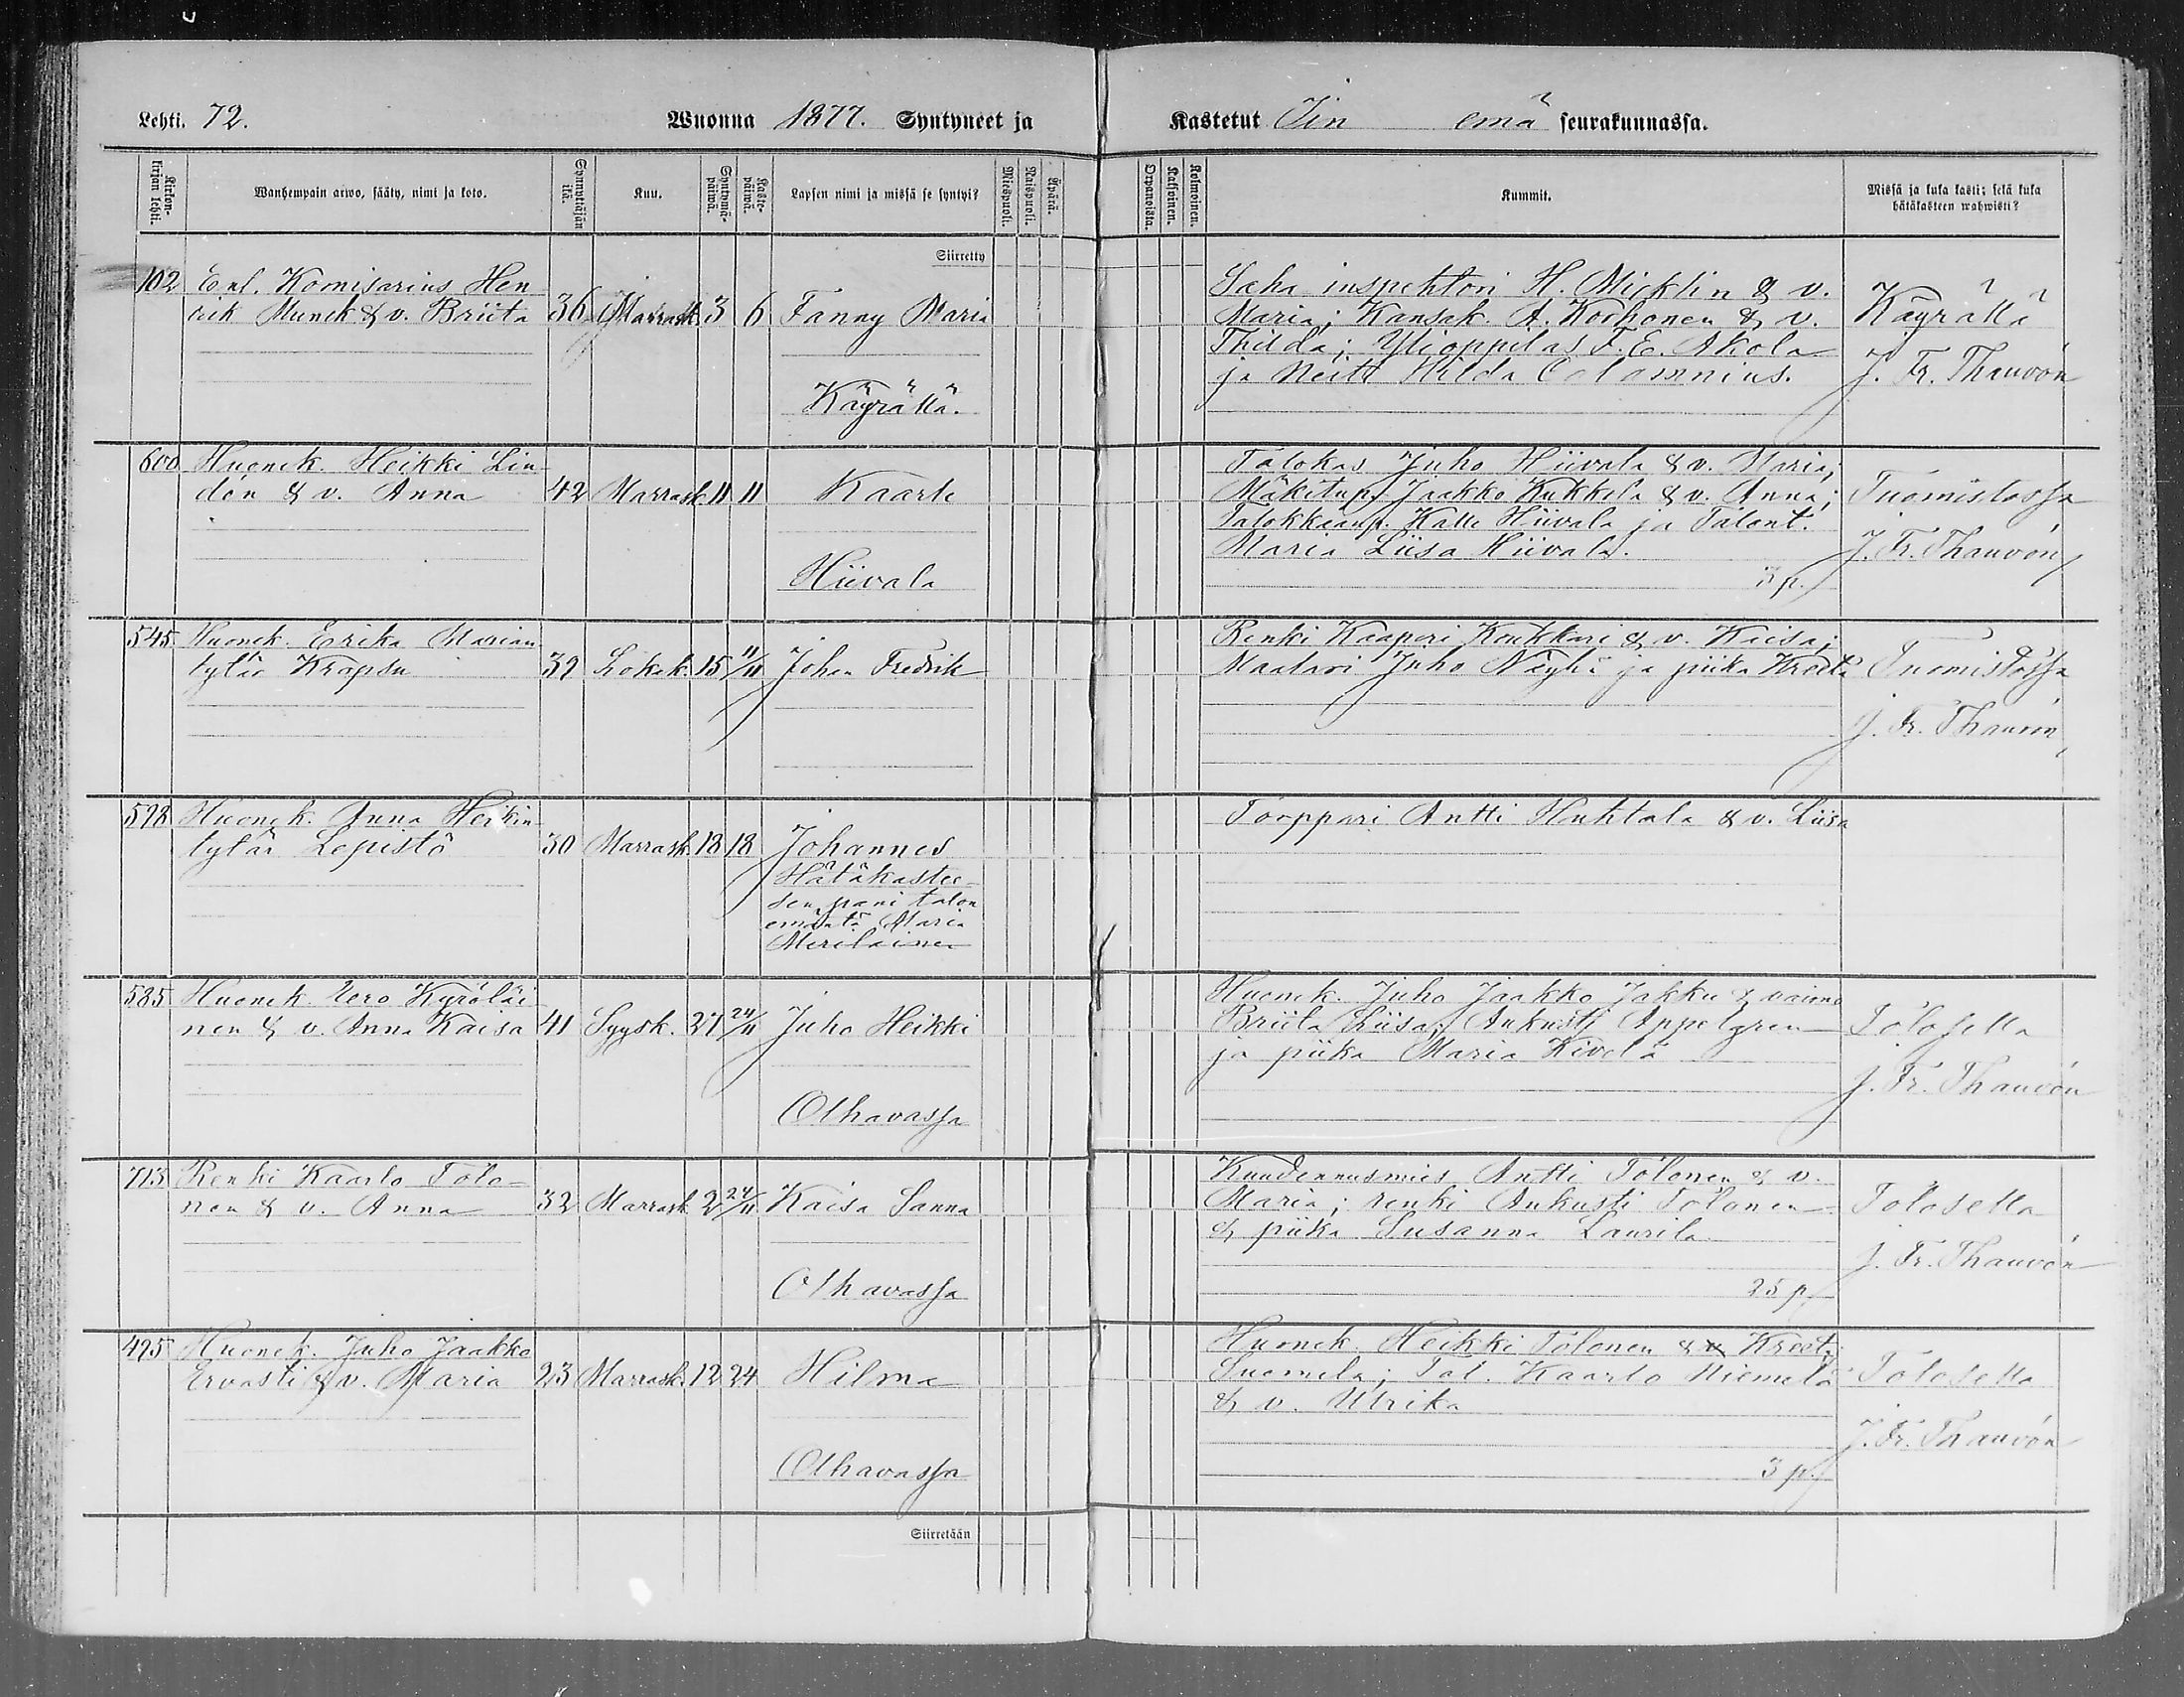 Lehti. 72.
Wuonna 1877. Syntyneet ja
Kastetut Iin emä seurakunnassa.
Kirkon-kirjan lehti.
Wanhempain arwo, sääty, nimi ja koto.
Synnyttäjän ikä.
Kuu.
Syntymä-päiwä.
Kaste-päiwä.
Lapsen nimi ja missä se syntyi?
Miespuoli.
Naispuoli.
Äpärä.
Orpanoista.
Kaksoinen.
Kolmoinen.
Kummit.
Missä ja kuka kasti; sekä kuka
hätäkasteen wahwisti?
Siirretty
102 Ent. Komisarius Hen
rik Munck & v. Briita 36 Marrask. 3 6 Fanny Maria
Käyrällä.
Saha inspehtori H. Micklin & v.
Maria; Kansak. A. Korhonen & v.
Thilda; Ylioppilas F. E. Akola
ja Neiti Hilda Calamnius.
Käyrällä
J. Fr. Thauvón
600 Huonek. Heikki Lin
dón & v. Anna 42 Marrask. 11 11 Kaarle
Hiivala
Talokas Juho Hiivala & v. Maria;
Mäkitup. Jaakko Kukkela & v. Anna;
Talokkaanp. Kalle Hiivala ja Talont.
Maria Liisa Hiivala.
3 p.
Tuomistossa
J. Fr. Thauvón
545 Huonek. Erika Marian
tytär Krapsu 32 Lokak. 15 11/11 Johan Fredrik
Renki Kaaperi Koukkari & v. Kaisa;
Maalari Juho Näyhä ja piika Kreeta
Tuomistossa
J. Fr. Thauvón
598 Huonek. Anna Heikin
tytär Lepistö 30 Marrask. 18 18 Johannes
Hätäkastee
sen pani talon
emäntä Maria
Meriläinen
Torppari Antti Huhtala & v. Liisa
585 Huonek. Eero Kyröläi
nen & v. Anna Kaisa 41 Syysk. 27 24/11 Juho Heikki
Olhavassa
Huonek. Juho Jaakko Jakku & vaimo
Briita Liisa; Aukusti Appelgren
ja piika Maria Kivelä
Tolosella
J. Fr. Thauvón
713 Renki Kaarlo Tolo-
nen & v. Anna 32 Marrask. 2 24/11 Kaisa Sanna
Olhavassa
Kuudennusmies Antti Tolonen & v.
Maria; renki Aukusti Tolonen
& piika Susanna Laurila
25 p.
Tolosella
J. Fr. Thauvón
495 Huonek. Juho Jaakko
Ervasti & v. Maria 23 Marrask. 12 24 Hilma
Olhavassa
Huonek. Heikki Tolonen & v Kreeta
Suomela; Tal. Kaarlo Niemelä
& v. Ulrika
3 p.
Tolosella
J. Fr. Thauvón
Siirretään